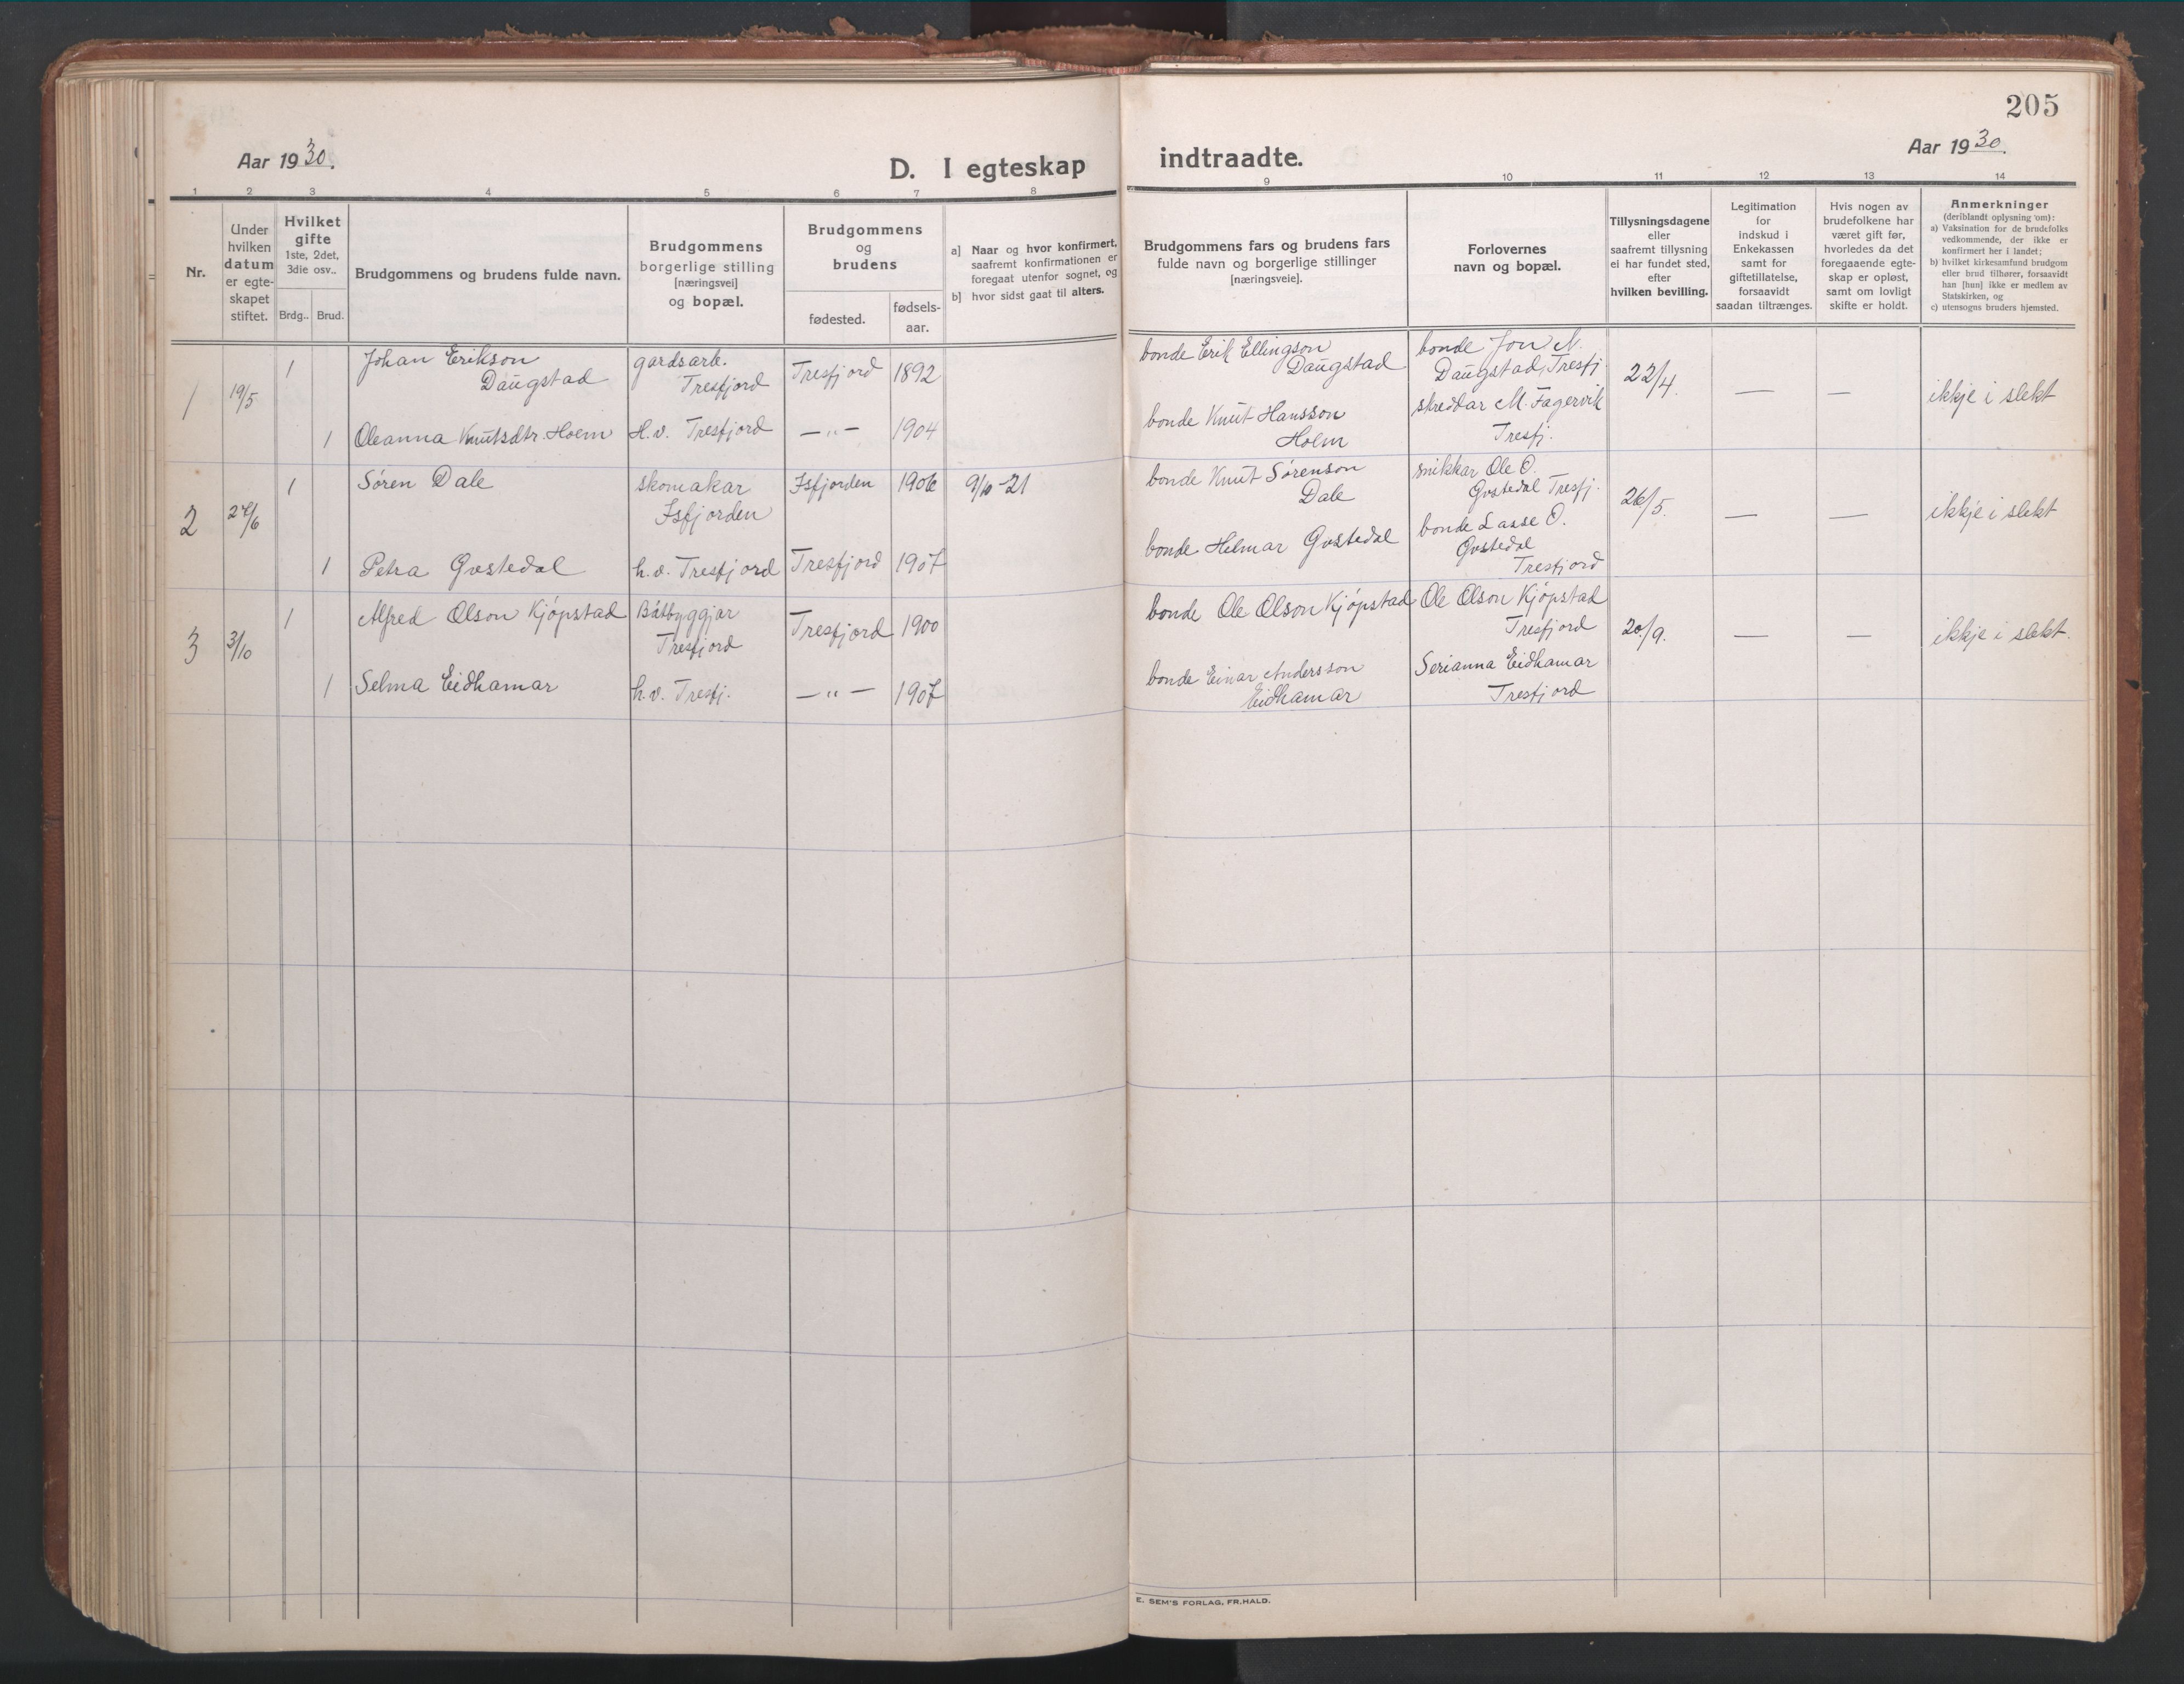 205
Aar 1930.
D. I egteskap indtraadte.
Aar 1930.
1 2 3 4 5 6 7 8 9 10 11 12 13 14
Nr.
Under
hvilken
datum
er egte-
skapet
stiftet.
Hvilket
gifte
1ste, 2det,
3die osv..
Brdg.. Brud.
Brudgommens og brudens fulde navn.
Brudgommens
borgerlige stilling
[næringsvei]
og bopæl.
Brudgommens
og
brudens
fødested.
fødsels-
aar.
a] Naar og hvor konfirmert,
saafremt konfirmationen er
foregaat utenfor sognet, og
b] hvor sidst gaat til alters.
Brudgommens fars og brudens fars
fulde navn og borgerlige stillinger
[næringsveie].
Forlovernes
navn og bopæl.
Tillysningsdagene
eller
saafremt tillysning
ei har fundet sted,
efter
hvilken bevilling.
Legitimation
for
indskud i
Enkekassen
samt for
giftetillatelse,
forsaavidt
saadan tiltrænges.
Hvis nogen av
brudefolkene har
været gift før,
hvorledes da det
foregaaende egte-
skap er opløst,
samt om lovligt
skifte er holdt.
Anmerkninger
(deriblandt oplysning om):
a) Vaksination for de brudefolks
vedkommende, der ikke er
konfirmert her i landet;
b) hvilket kirkesamfund brudgom
eller brud tilhører, forsaavidt
han [hun] ikke er medlem av
Statskirken, og
c) utensogns bruders hjemsted.
1
19/5
1
Johan Erikson
Daugstad
gardsarb.
Tresfjord
Tresfjord
1892
bonde Erik Ellingson
Daugstad
bonde Jon N.
Daugstad, Tresfj.
22/4.
—
—
ikkje i slekt
1
Oleanna Knutsdtr. Holm
H.v. Tresfjord
— " —
1904
bonde Knut Hansson
Holm
skreddar M. Fagervik
Tresfj.
2
27/6
1
Søren Dale
skomakar
Isfjorden
Isfjorden
1906
9/10-21
bonde Knut Sørenson
Dale
snikkar Ole O.
Gostedal Tresfj.
26/5.
—
—
ikkje i slekt
1
Petra Gostedal
h.v. Tresfjord
Tresfjord
1907
bonde Helmar Gostedal
bonde Lasse O.
Gostedal
Tresfjord
3
3/10
1
Alfred Olson Kjøpstad
Båtbyggjar
Tresfjord
Tresfjord
1900
bonde Ole Olson Kjøpstad
Ole Olson Kjøpstad
Tresfjord
20/9.
—
—
ikkje i slekt.
1
Selma Eidhamar
h.v. Tresfj.
— " —
1907
bonde Einar Andersson
Eidhamar
Serianna Eidhamar
Tresfjord
E. SEM'S FORLAG, FR.HALD.